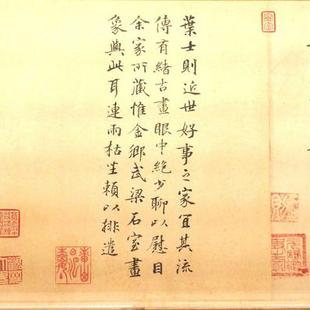 葉士則近世好事之家宜其流
傳有緒古畫眼中絕少聊以慰目
余家所藏惟金鄉武梁石室畫
象與此耳連雨枯坐賴以排遣